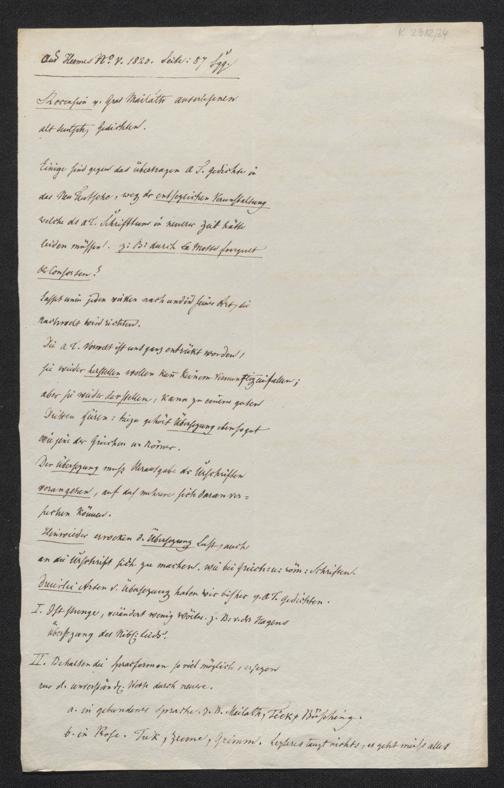 K 2312/24
Aus Hermes No. V. 1820. Seite: 87 fgg.
Recension v. Graf Mailáths auserlesenen
altdeutsch. Gedichten.
Einige sind gegen das übertragen a. T. gedichte in
das Neu Deutsche, weg. der entsezlichen Verunstaltung
welche die a. T. Schriftthum in neuerer Zeit hätte
leiden müssen. z: B: durch La Motte fouquet
& Consorten!
Lasset nun jeden wirken nach und in seiner Art, die
Nachwelt wird richten.
Die a. T. Vorwelt ist uns ganz entrükt worden,
sie wieder herstellen wollen kan keinem Vernünftig. einfallen;
aber sie wieder darstellen, kann zu einem guten
füren: hiezu gehört Übersezung eben so gut
wie jene der Griechen u. Römer.
Der Übersezung muß Herausgabe der Urschriften
vorangehen, auf daß mehrere sich daran ver=
suchen können.
Hinwieder erwecken d. Übersezung Lust, auch
an die Urschrift sich zu machen. wie bei griech: u: röm: Schriften.
Dreierlei Arten v. Übersezung haben wir bisher v. a. T. gedichten.
I. Ist strenge, verändert wenig Wörter. z. B. v. der Hagens
Übersezung des Nibl. lieds.
II. Behalten die Sprachformen so viel möglich, ersezen
nur d. unverständl. Worte durch neuere.
a. in gebundener Sprache. z. B. Mailáth, Tieck, Büsching.
b. in Prosa. Tiek, Zeune, Grimm. lezteres taugt nichts, es geht meist alles